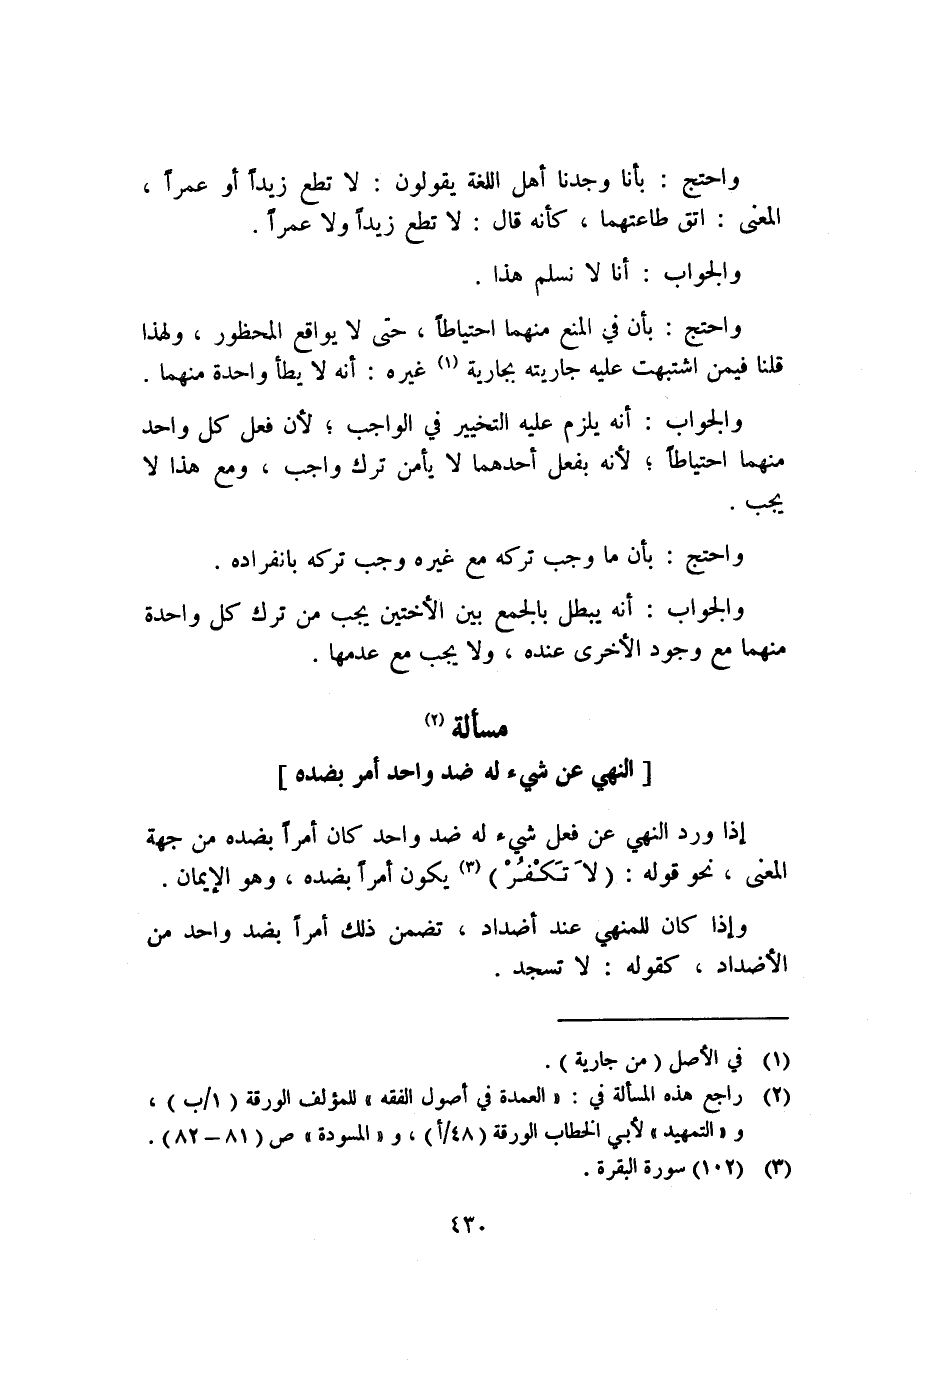 واحتج : بأنا وجدنا أهل اللغة يقولون : لا تطع زيداً أو عمراً ،
المعنى : اتق طاعتهما ، كأنه قال : لا تطع زيداً ولا عمراً .
والجواب : أنا لا نسلم هذا .
واحتج : بأن في المنع منهما احتياطاً ، حتى لا يواقع المحظور ، ولهذا
قلنا فيمن اشتبهت عليه جاريته بجارية (١) غيره : أنه لا يطأ واحدة منهما .
والجواب : أنه يلزم عليه التخيير في الواجب ؛ لأن فعل كل واحد
منهما احتياطاً ؛ لأنه بفعل أحدهما لا يأمن ترك واجب ، ومع هذا لا
يجب .
واحتج : بأن ما وجب تركه مع غيره وجب تركه بانفراده .
والجواب : أنه يبطل بالجمع بين الأختين يجب من ترك كل واحدة
منهما مع وجود الأخرى عنده ، ولا يجب مع عدمها .
مسألة (٢)
[ النهي عن شيء له ضد واحد أمر بضده ]
إذا ورد النهي عن فعل شيء له ضد واحد كان أمراً بضده من جهة
المعنى ، نحو قوله : ( لاَ تَكْفُرْ ) (٣) يكون أمراً بضده ، وهو الإيمان .
وإذا كان للمنهي عند أضداد ، تضمن ذلك أمراً بضد واحد من
الأضداد ، كقوله : لا تسجد .
(١) في الأصل ( من جارية ) .
(٢) راجع هذه المسألة في : « العمدة في أصول الفقه » للمؤلف الورقة ( ١/ب ) ،
و « التمهيد » لأبي الخطاب الورقة ( ٤٨/أ ) ، و « المسودة » ص ( ٨١ – ٨٢ ) .
(٣) (١٠٢) سورة البقرة .
٤٣٠